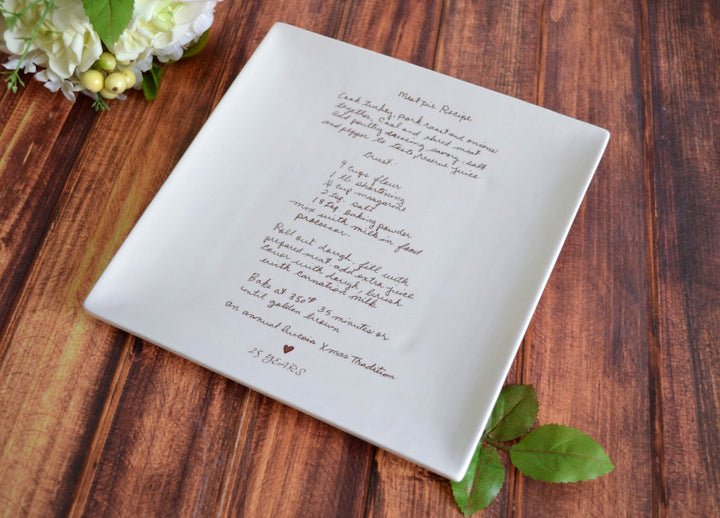 Meat pie Recipe
Cook turkey, pork roast and onions
together, Cool and shred meat
add poultry dressing, savory, salt
and pepper to taste, reserve juice
Crust:
9 cups flour
1 lb shortening
cup margarine
tsp. salt
tsp baking powder
mix with milk in food
processor.
Roll out dough, fill with
prepared meat add extra juice
cover with dough, brush
with carnation milk
Bake at 350°F 35 minutes or
until golden brown
An annual Xmas Tradition
25 YEARS